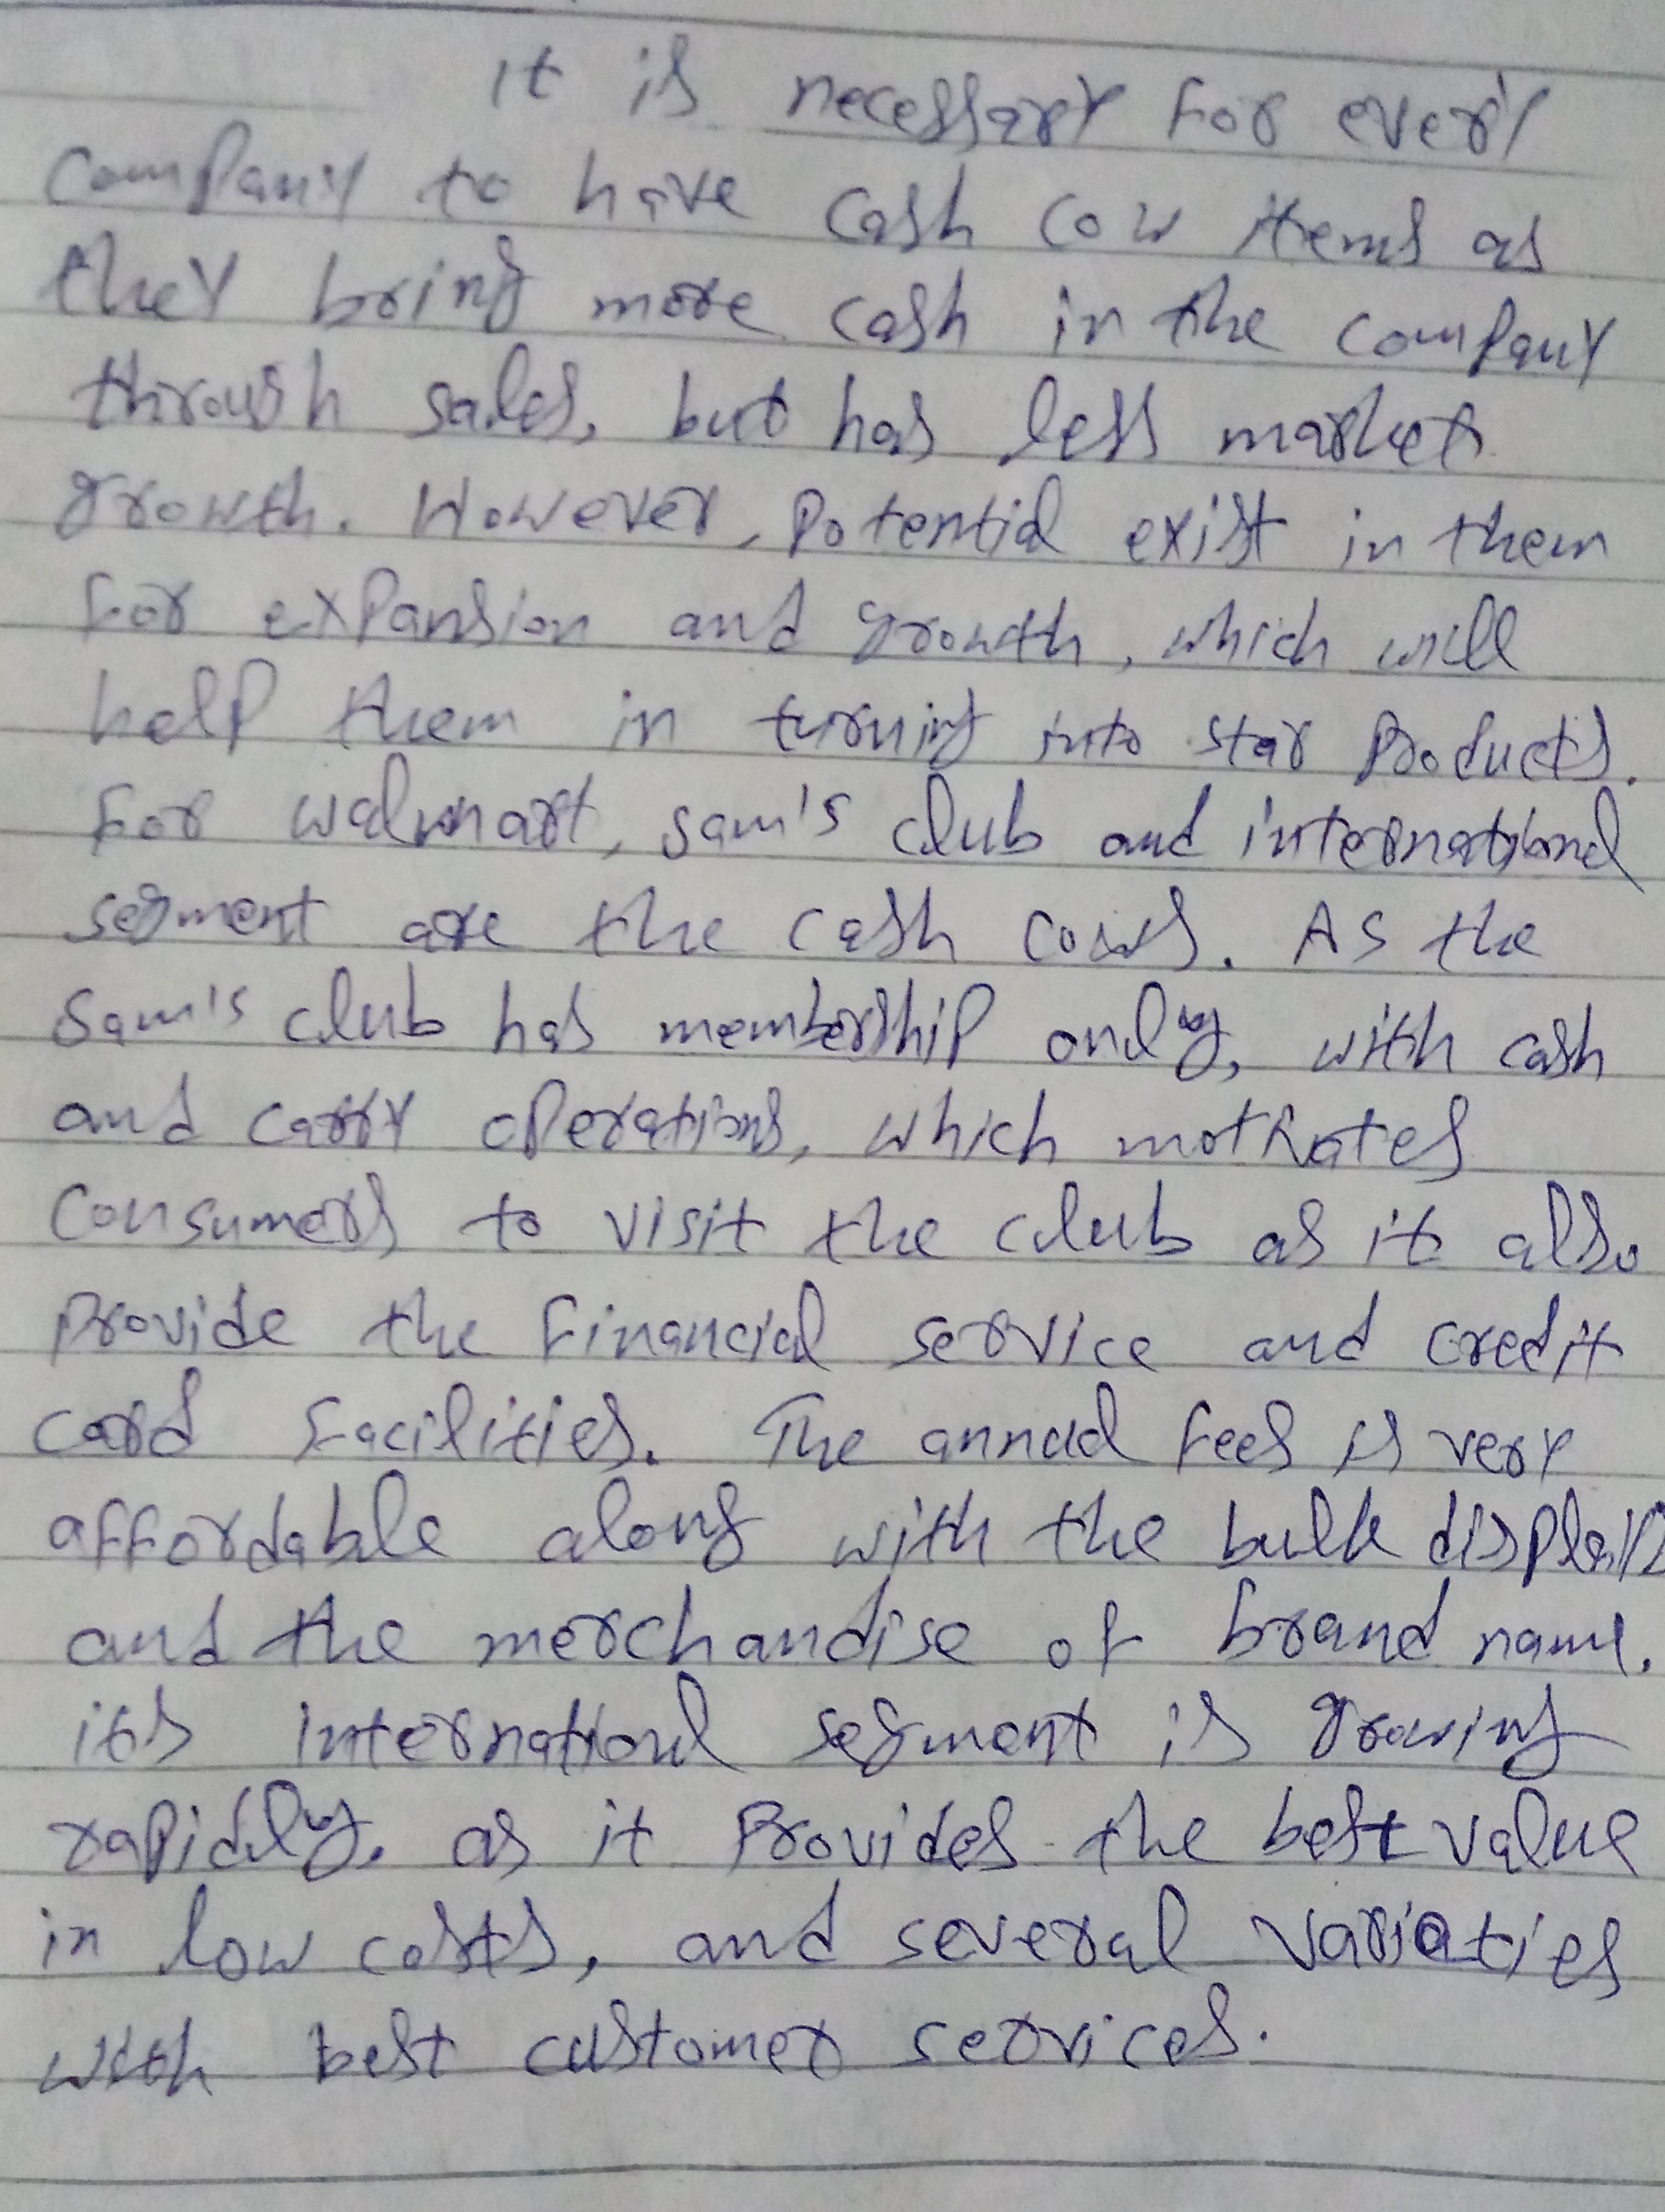 It is necessary for every
company to have cash cow items as
they bring more cash in the company
through sales, but has less market
growth. However, potential exist in them
for expansion and growth, which will
help them in turning into star products.
For walmart, sam's club and international
segment are the cash cows. As the
Sam's club has membership only, with cash
and carry operations, which motivates
consumers to visit the club as it also
provide the financial service and credit
card facilities. The annual fees is very
affordable along with the bulk displays
and the merchandise of brand name.
its international segment is growing
rapidly. as it provides the best value
in low costs, and several variaties
with best customer services.